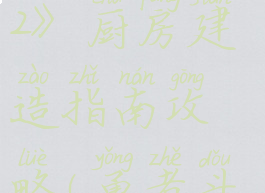 2》 厨房建
zào zhǐ nán gōng
造指南攻
lüè yǒng zhě dòu
略！勇者斗